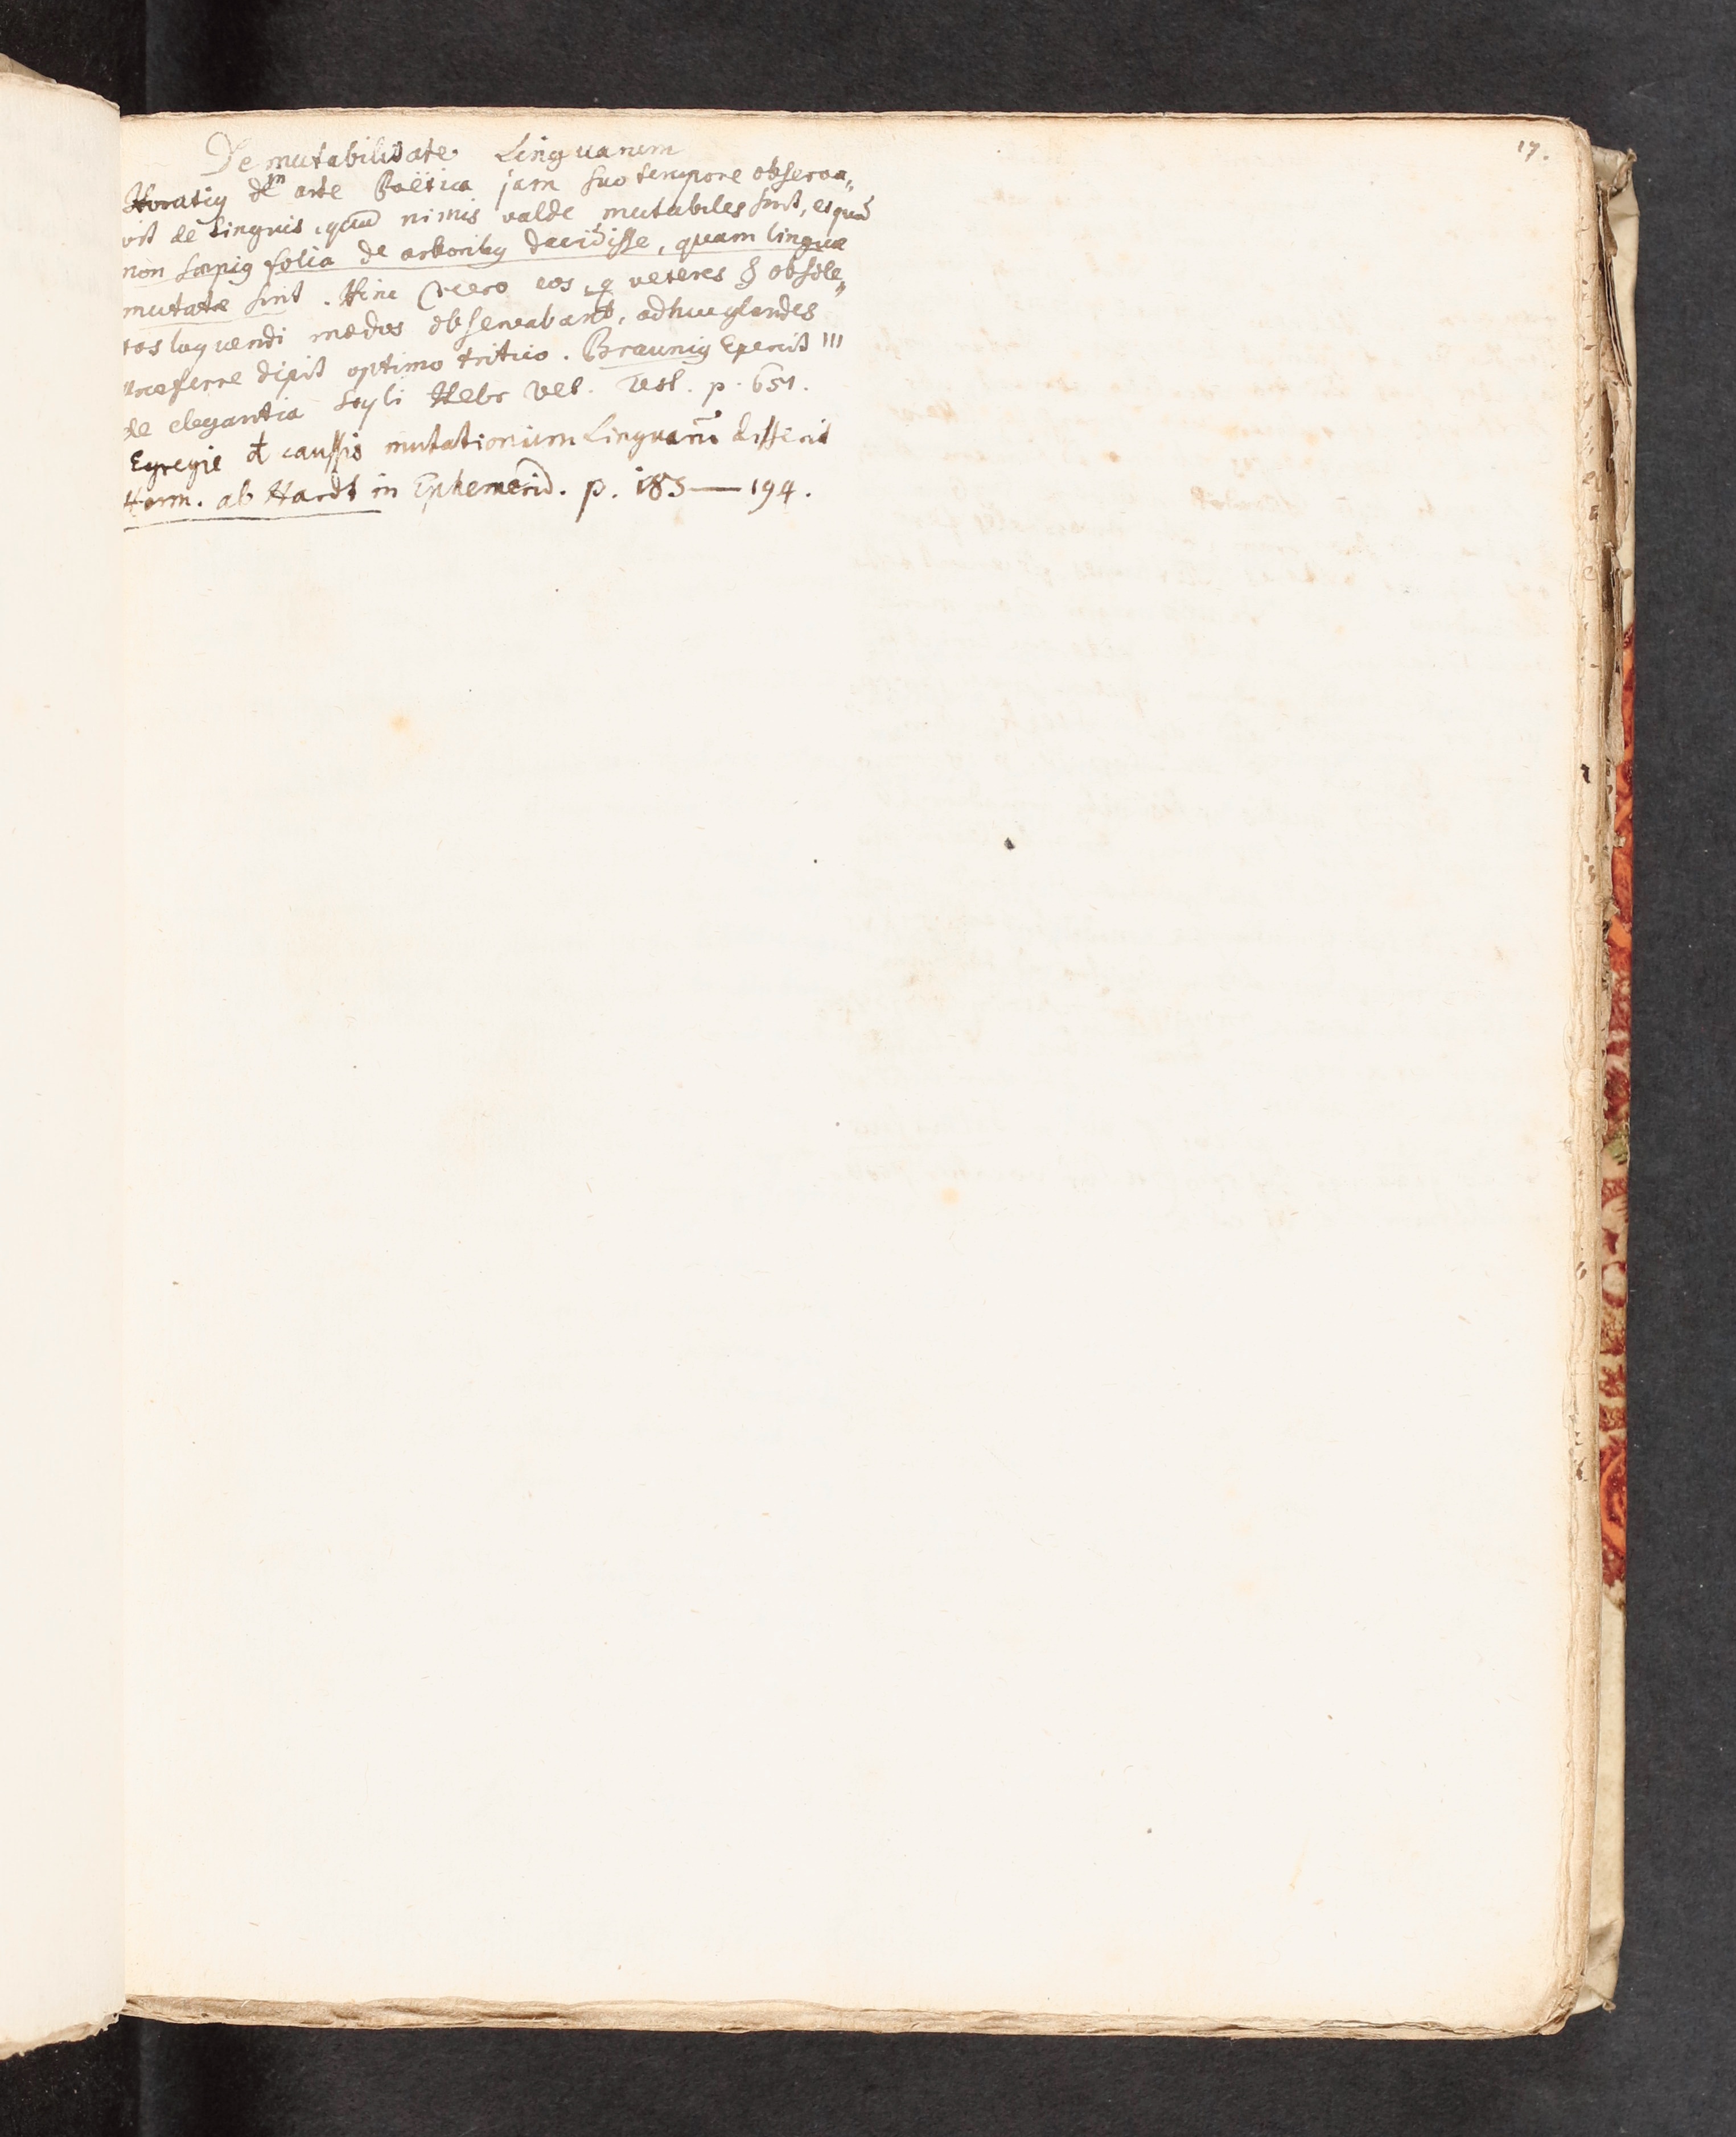 17.
De mutabilitate Linguarum
Horatiꝰ in arte Poëtica jam suo tempore observa„
vit de Linguis, quod nimis valde mutabiles sint, et quod
non sæpiꝰ folia de arboribꝰ decidisse, quam linguæ
mutatæ sint. Hinc Cicero eos, q veteres & obsole„
tos loquendi modos observabant, adhuc glandes
præferre dixit optimo tritico. Brauniꝰ Exercit III
de elegantia Styli Hebr Vet. Test. p. 651.
Egregie de caussis mutationum Linguarũ disserit
Herm. ab Hardt in Ephemerid. p. 183—194.